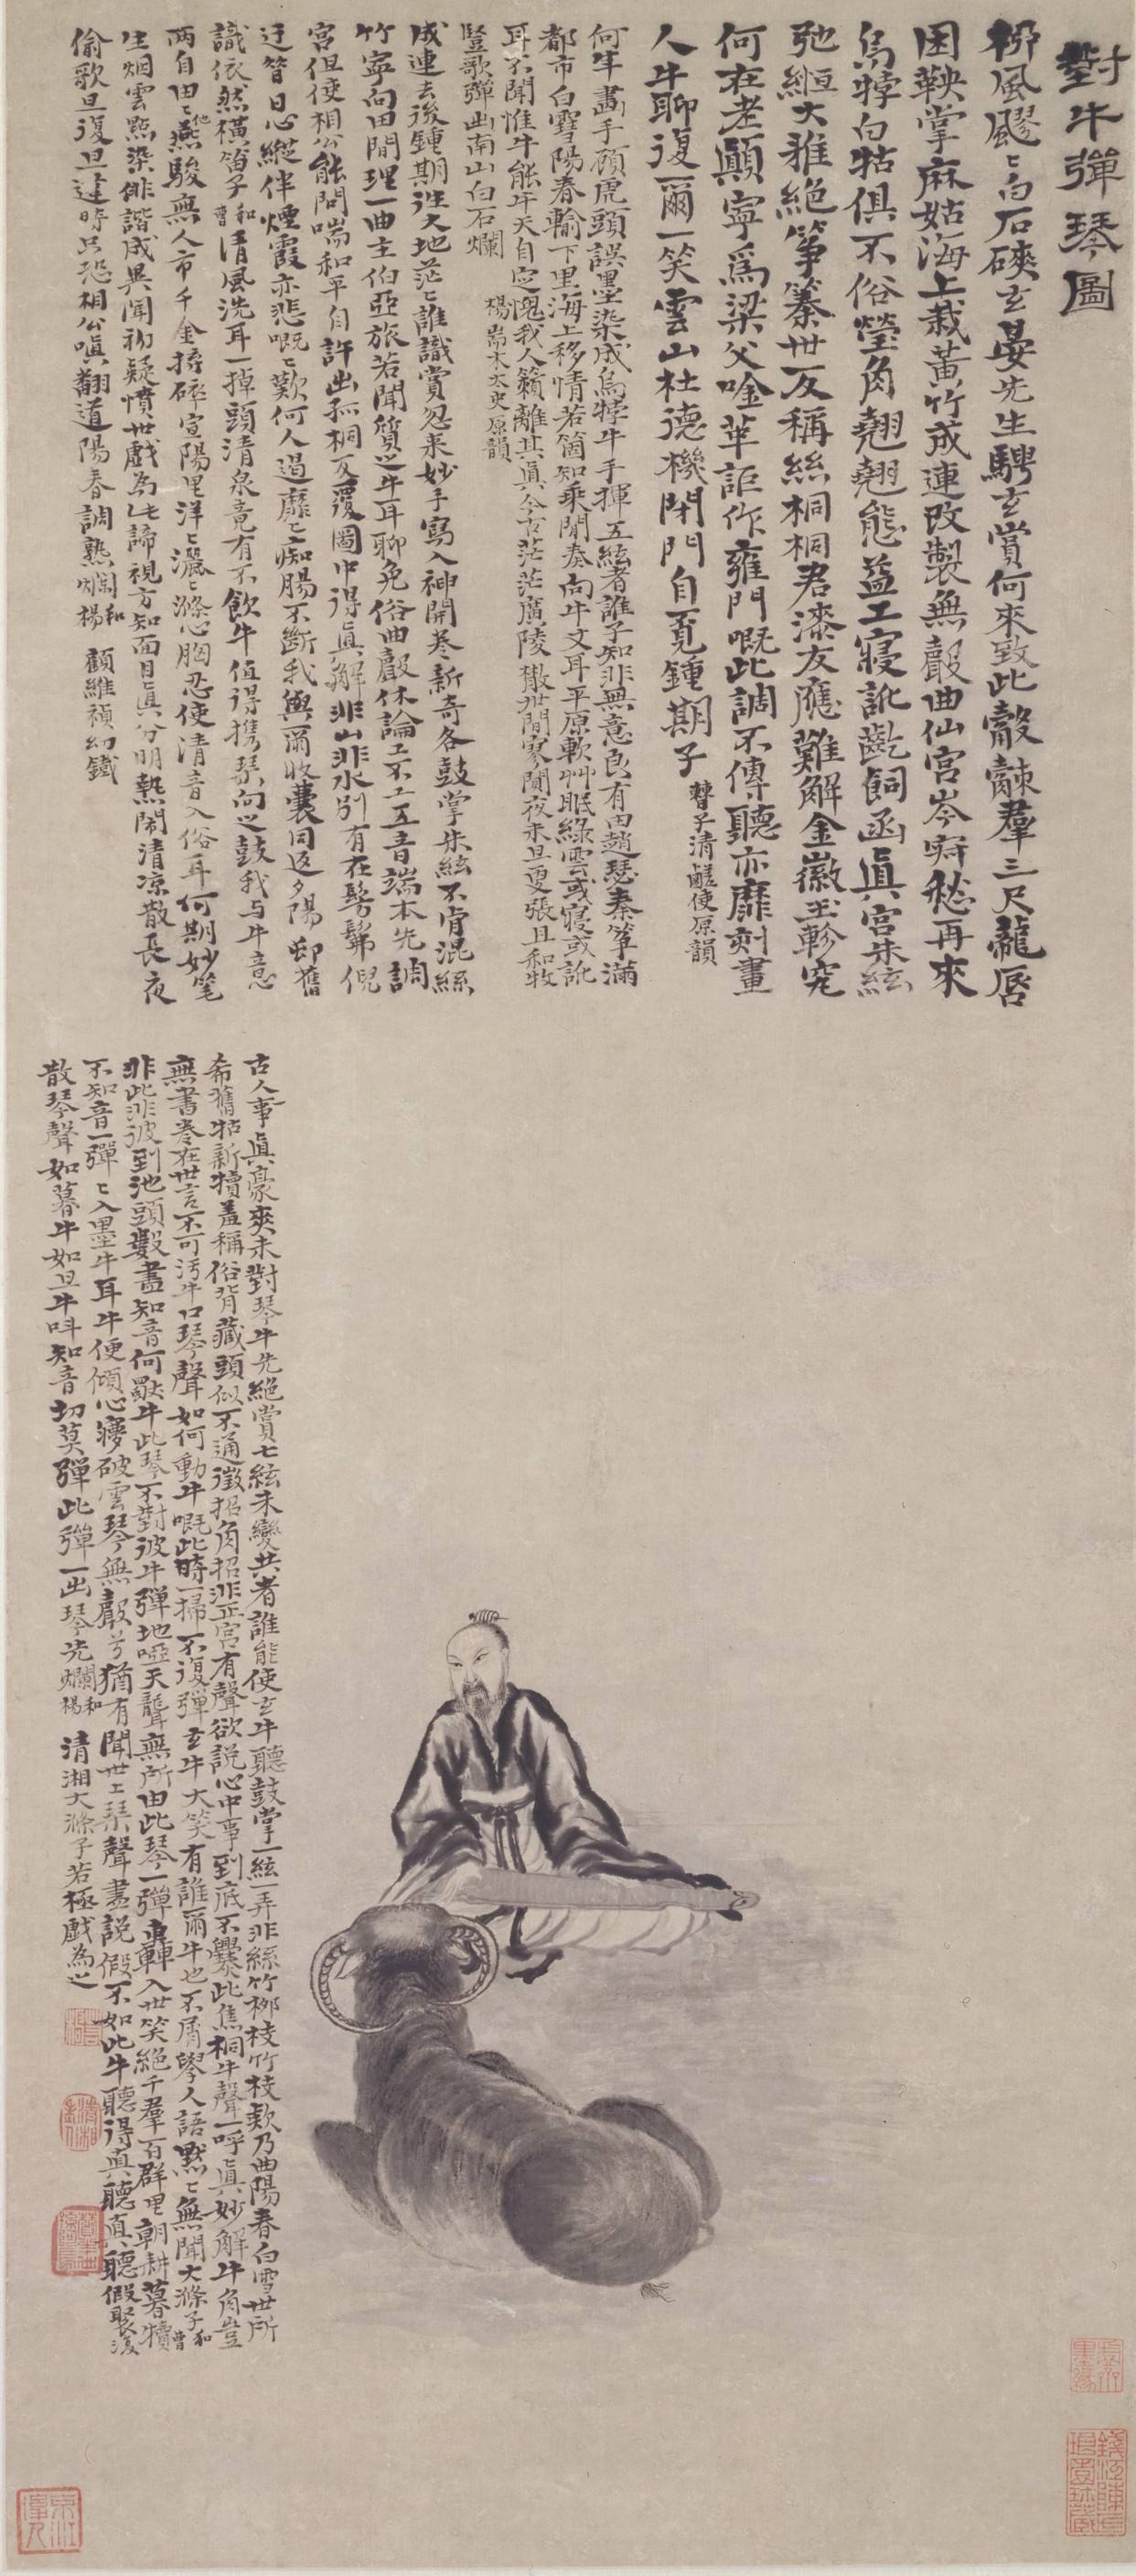 對牛彈琴圖
柳風颼颼白石磢玄晏先生騁玄賞何來致此觳觫羣三尺龍唇
困鞅掌麻姑海上栽黃竹成連改製無聲曲仙宮岑寂愁再來
烏牸白牯俱不俗瑩角翹翹態益工寢訛齝飼函眞宮朱絃
弛縆大雅絶箏䉛世反稱絲桐桐君漆友應難解金徽玉軫究
何在老顚寧爲梁父唫革詎作雍門嘅此調不傳聽亦靡刻畫
人牛聊復爾一笑雲山杜德機閉門自覓鍾期子 曹子清鹺使原韻
何年畫手顧虎頭誤墨染成烏牸牛手揮五絃者誰子知非無意良有由趙瑟秦箏滿
都市白雪陽春輸下里海上移情若箇知乘閒奏向牛文耳平原軟艸眠綠雲或寢或訛
耳不聞惟牛能牛天自定愧我人籟離其眞今古茫茫廣陵散世間寥闃夜未旦更張且和牧
豎歌彈出南山白石爛 楊耑木太史原韻
成連去後鍾期往大地茫茫誰識賞忽來妙手寫入神開卷新奇各鼓掌朱絃不肯混絲
竹寧向田間理一曲主伯亞旅若聞質之牛耳聊免俗曲聲休論工不工五音端本先調
宮但使相公能問喘和平自許出孤桐反覆圖中得眞解非山非水別有在髣髴倪
迂昝日心縱伴煙霞亦悲嘅嘅歎何人過靡靡痴腸不斷我與爾收囊同返夕陽邨舊
識依然橫笛子 和曹 清風洗耳一掉頭清泉竟有不飲牛值得攜琴向之鼓我与牛意
兩自由他燕駿無人市千金擲碎宣陽里洋洋灑灑滌心胸忍使清音入俗耳何期妙笔
生烟雲點染俳諧成異聞初疑憤世戲為此諦視方知面目眞分明熱鬧清凉散長夜
偷歌旦復旦逢時只恐相公嗔翻道陽春調熟爛 和楊 顧維禎幼鐵
古人事眞豪爽未對琴牛先絶賞七絃未變共者誰能使玄牛聽鼓掌一絃一弄非絲竹柳枝竹枝欸乃曲陽春白雪世所
希舊牯新犢羞稱俗背藏頭似不通徵招角招非正宮有聲欲說心中事到底不爨此焦桐牛聲一呼眞妙解牛角豈
無書卷在世言不可汚牛口琴聲如何動牛嘅此時一掃不復彈玄牛大笑有誰爾牛也不屑學人語默默無聞大滌子 和曹
非此非彼到池頭數盡知音何獨牛此琴不對彼牛彈地啞天聾無所由此琴一彈轟入世笑絶千羣百群里朝耕暮犢
不知音一彈彈入墨牛耳牛便傾心寥破雲琴無聲兮猶有聞世上琴聲盡說假不如此牛聽得眞聽眞聽假聚復
散琴聲如暮牛如旦牛呌知音切莫彈此彈一出琴先爛 和楊 清湘大滌子若極戲為之